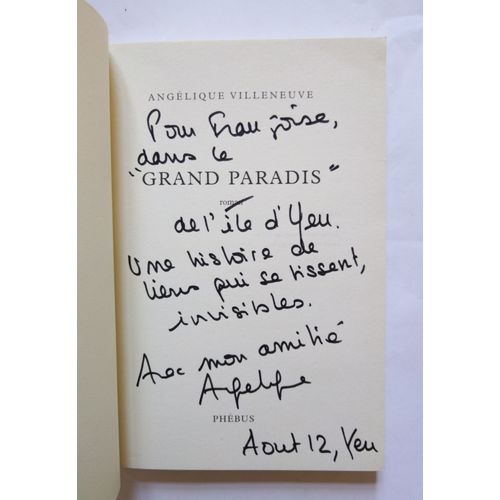 ANGÉLIQUE VILLENEUVE
Pour Françoise,
dans le
"GRAND PARADIS"
roman
de l'île d'Yeu.
Une histoire de
liens qui se tissent,
invisibles.
Avec mon amitié
Angélique
PHÉBUS
Aout 12, Yeu